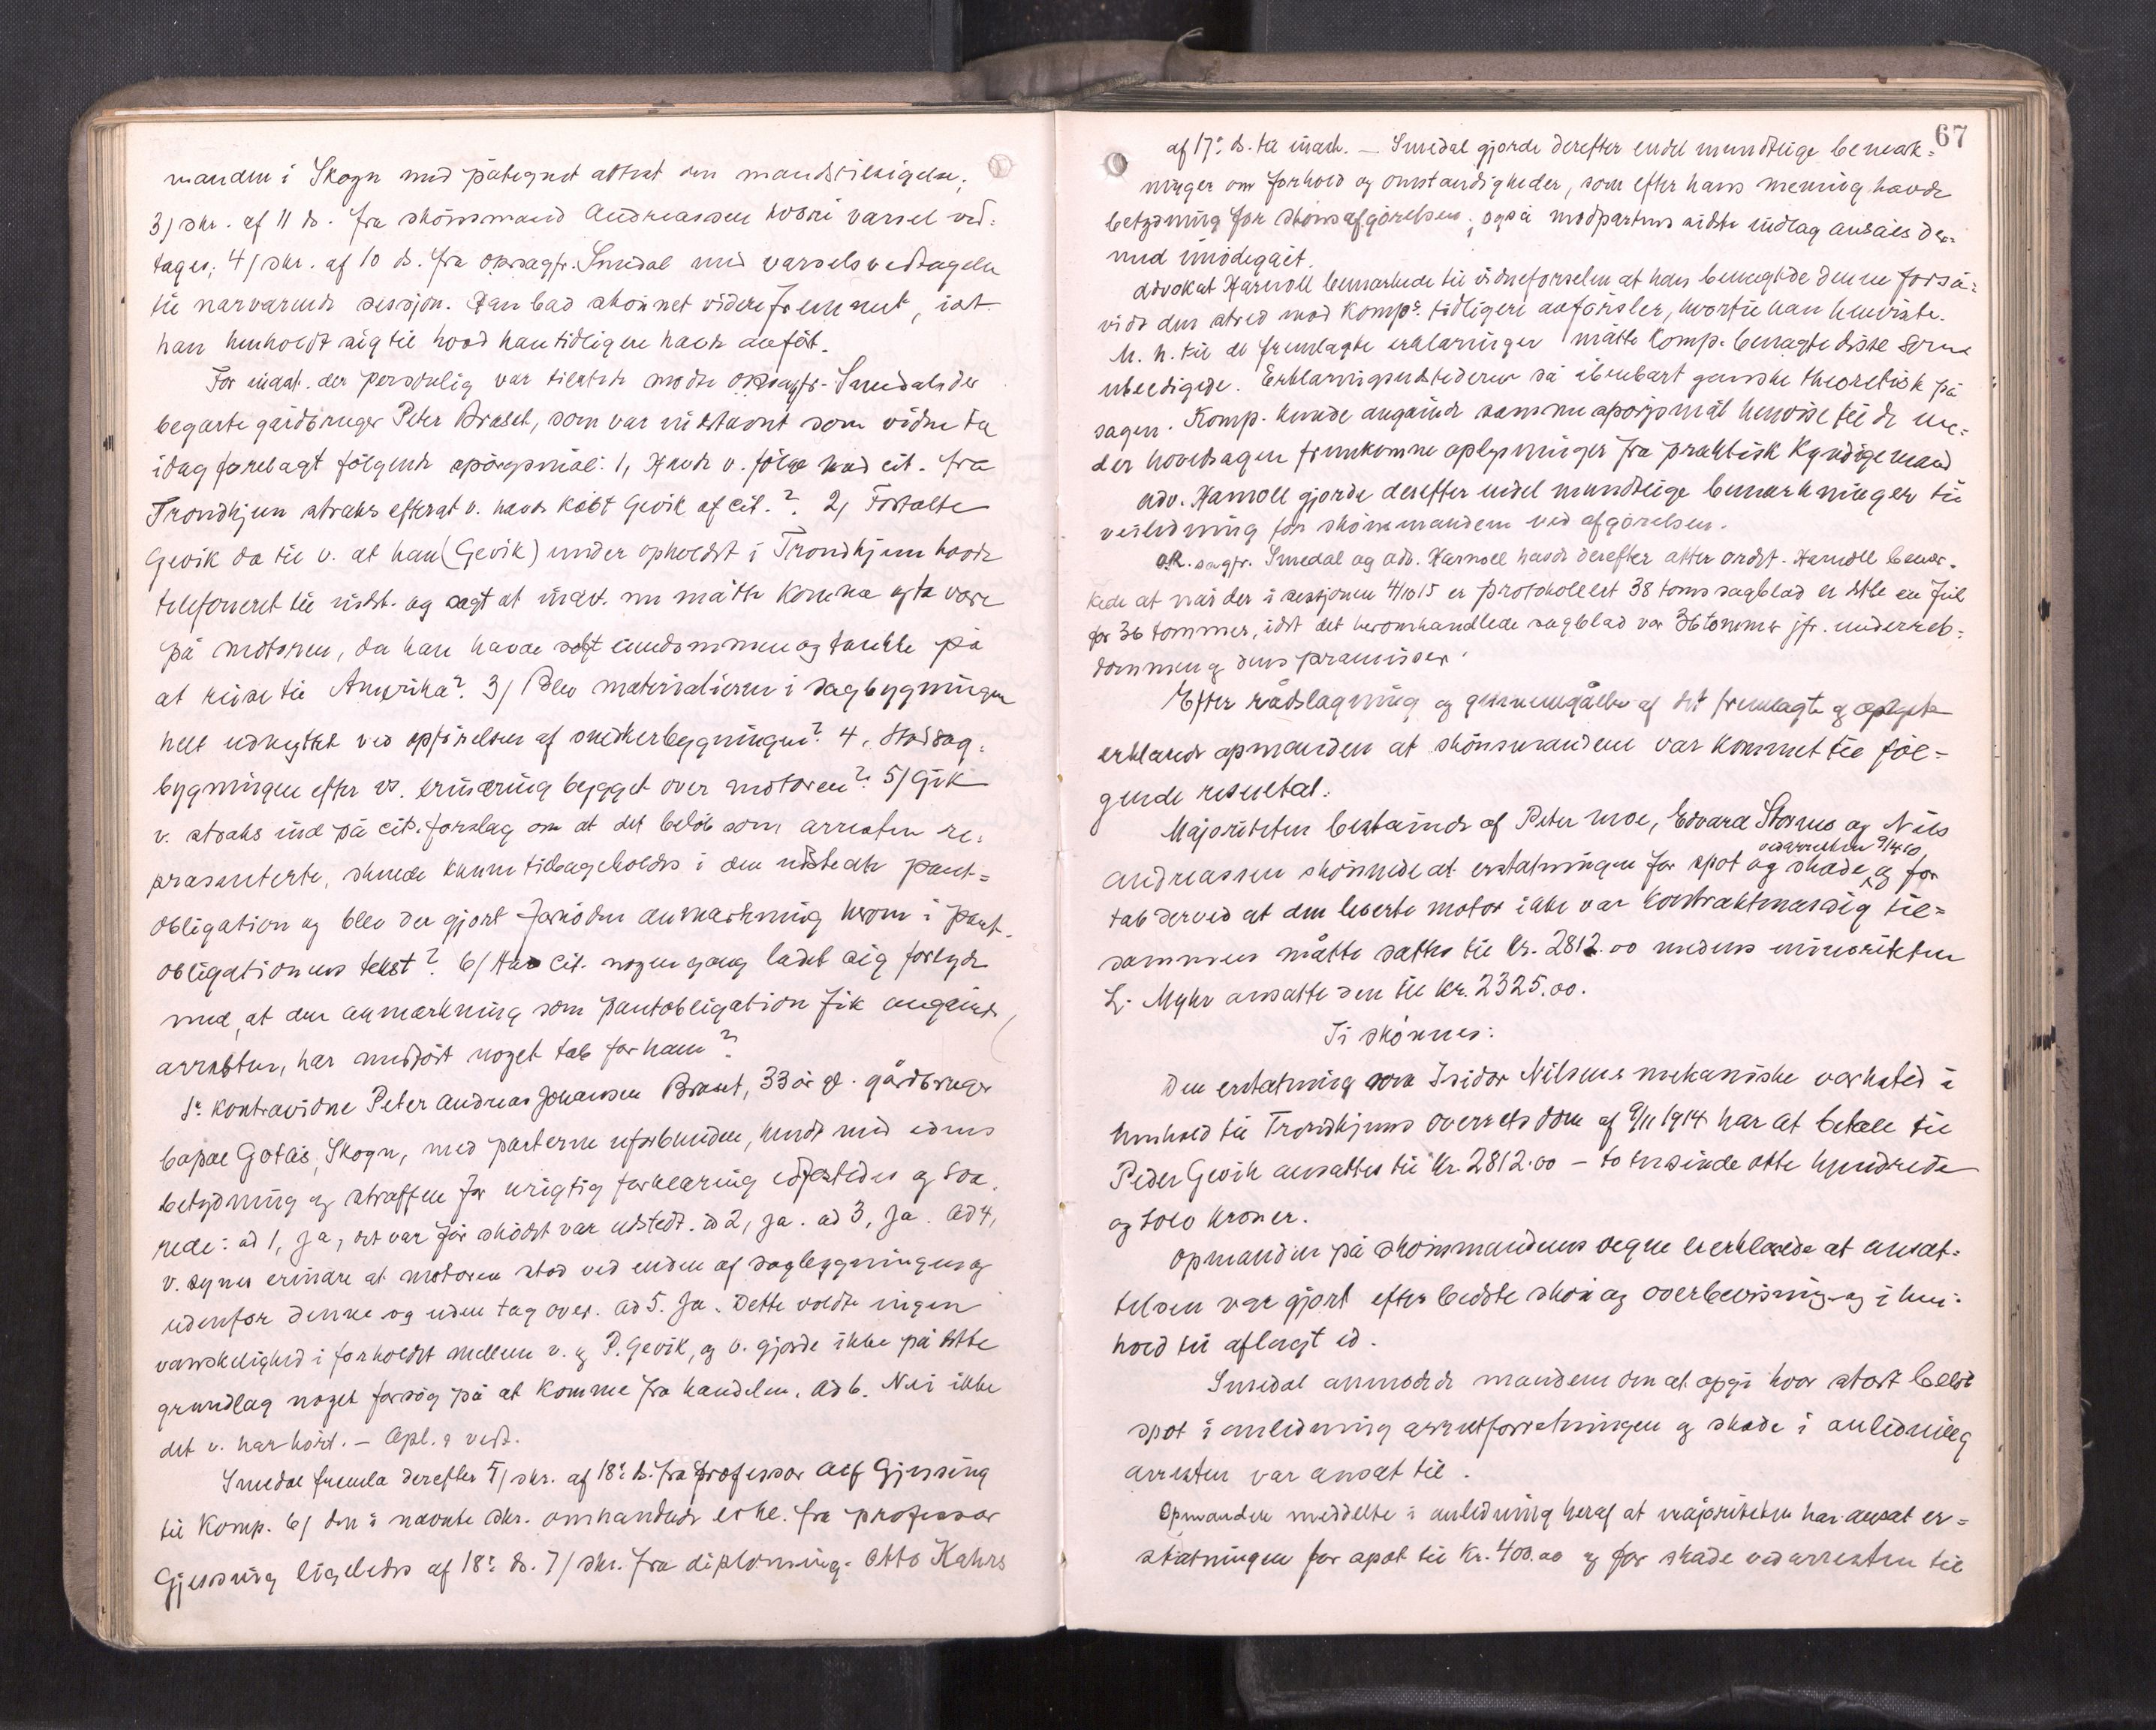 manden i Skogn med påtegnet attest om mandsvilligelse;
3) skr. af 11 ds. fra skönsmand Andreassen hvori varsel ved-
tages; 4) skr. af 10 ds. fra oksagfr. Smedal med varselsvedtagelse
til nærværende sessjon. Han bad skönnet videre fremmet, idet
han henholdt sig til hvad han tidligere havde anfört.
For indst. der personlig var tilstede mödte oksagfr. Smedal der
begærte gårdbruger Peter Braset, som var indstævnt som vidne til
idag forelagt fölgende spörgsmål: 1, Havde v. fölge med cit. fra
Trondhjem straks efterat v. havde köbt Gevik af cit.? 2, Fortalte
Gevik da til v. at han (Gevik) under opholdet i Trondhjem havde
telefoneret til indst. og sagt at indst. nu måtte komme og ta vare
på motoren, da han havde solgt eiendommen og tænkte på
at reise til Amerika? 3) Blev materialierne i sagbygningen
helt udnyttet ved opförelsen af snedkerbygningen? 4, Stod sag-
bygningen efter vs. erindring bygget over motoren? 5) Gik
v. straks ind på cit. forslag om at det belöb som arresten re-
præsenterte, skulde kunne tilbageholdes i den udstedte pant-
obligation og blev der gjort fornöden anmærkning herom i pant-
obligationens tekst? 6) Har cit. nogen gang ladet sig forlyde
med, at den anmærkning som pantobligation fik angående
arresten, har medfört noget tab for ham?
1ste kontravidne Peter Andreas Johansen Braset, 33 år gl. gårdbruger
bopæl Gotås, Skogn, med parterne uforbunden, kendt med edens
betydning og straffen for urigtig forklaring edfæstedes og sva-
rede: ad 1, Ja, det var för sködet var udstedt. ad 2, Ja. ad 3, Ja. Ad 4,
v. synes erindre at motoren stod ved enden af sagbygningen og
udenfor denne og uden tag over. ad 5. Ja. Dette voldte ingen
vanskelighed i forholdet mellem v. og P. Gevik, og v. gjorde ikke på dette
grundlag noget forsög på at komme fra handelen. ad 6. Nei ikke
det v. har hört. — Opl. & vedt.
Smedal fremla derefter 5) skr. af 18de ds. fra professor Alf Gjessing
til Komp. 6) den i nævnte skr. omhandlede erkl. fra professor
Gjessing ligeledes af 18de ds. 7) skr. fra diploming. Otto Kahrs
67
af 17de ds. til mask. — Smedal gjorde derefter endel mundtlige bemærk-
ninger om forhold og omstændigheder, som efter hans mening havde
betydning for skönsafgörelsen; også modpartens sidste indlæg ansåes der-
med imödegået.
Advokat Harnoll bemærkede til vidneförselen at han benegtede denne forså-
vidt den stred mod Komps. tidligere anförsler, hvortil han henviste.
M. h. til de fremlagte erklæringer måtte Komp. benegte disse som
ubeedigede. Erklæringsudstederen så åbenbart ganske theoretisk på
sagen. Komp. kunde angående samme spörgsmål henvise til de un-
der hovedsagen fremkomne oplysninger fra praktisk kyndige mænd
Adv. Harnoll gjorde derefter endel mundtlige bemærkninger til
veiledning for skönsmændene ved afgörelsen.
Ok.sagfr. Smedal og adv. Harnoll havde derefter atter ordet. Harnoll bemær-
kede at når der i sessjonen 4/10 15 er protokolleret 38 toms sagblad er dette en feil
for 36 tommer, idet det heromhandlede sagblad var 36 tommer jfr. underrets-
dommen og dens præmisser.
Efter rådslagning og gennemgåelse af det fremlagte og oplyste
erklærede opmanden at skönsmændene var kommet til föl-
gende resultat:
Majoriteten bestående af Peter Moe, Edvard Storhus og Nils
Andreassen skönnede at erstatningen for spot og skade ved arresten 9/4 10 og for
tab derved at den leverte motor ikke var kontraktmæssig til-
sammen måtte sættes til kr. 2812.00 medens minoriteten
L. Myhr ansatte den til kr. 2325.00.
Ti skönnes:
Den erstatning som Isidor Nilsens mekaniske værksted i
henhold til Trondhjems overrets dom af 9/11 1914 har at betale til
Peder Gevik ansættes til kr. 2812.00 — to tusinde otte hundrede
og tolv kroner.
Opmanden på skönsmændenes vegne erklærede at ansæt-
telsen var gjort efter bedste skön og overbevisning og i hen-
hold til aflagt ed.
Smedal anmodede mændene om at opgi hvor stort belöb
spot i anledning arrestforretningen og skade i anledning
arresten var ansat til.
Opmanden meddelte i anledning heraf at majoriteten har ansat er-
statningen for spot til kr. 400.00 og for skade ved arresten til